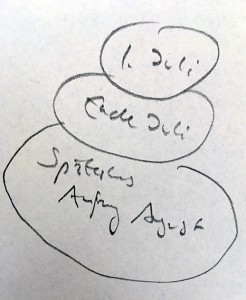 1. Juli
Ende Juli
Spätestens
Anfang August